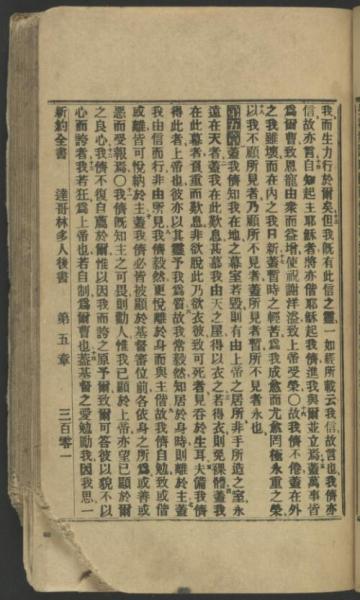 我而生力行於爾矣但我既有此信之靈一如經所載云我信故言也我儕亦
信故亦言自知起主耶穌者將亦偕耶穌起我儕進我與爾並立焉蓋萬事皆
爲爾曹致恩寵由衆而益增使祝謝洋溢致上帝受榮〇故我儕不倦蓋在外
之我雖壞而在內之我日新蓋暫時之輕苦爲我成愈而尤愈罔極永重之榮
以我不顧所見者乃顧所不見者蓋所見者暫所不見者永也
第五章蓋我儕知我在地之幕室若毀則有由上帝之居所非手所造之室永
遠在天者蓋我在此歎息甚慕我由天之屋得以衣之若得衣則免裸體蓋我
在此幕者負重而歎息非欲脫此乃欲衣彼致可死者見吞於生耳夫備我儕
得此者上帝也彼亦以其靈予我爲質故我常毅然知居於身時則離於主蓋
我由信而行非由所見我儕毅然更悅離於身而與主偕故我儕自勉致或偕
或離皆可悅納於主蓋我儕必皆被顯於基督審位前各依身之所爲或善或
惡而受報焉〇我儕既知主之可畏則勸人惟我已顯於上帝亦望已顯於爾
之良心我儕不復自薦於爾惟以因我而誇之原予爾致爾可答彼以貌不以
心而誇者我若狂爲上帝也若自制爲爾曹也蓋基督之愛勉勵我因我思一
新約全書 達哥林多人後書 第五章 三百零一